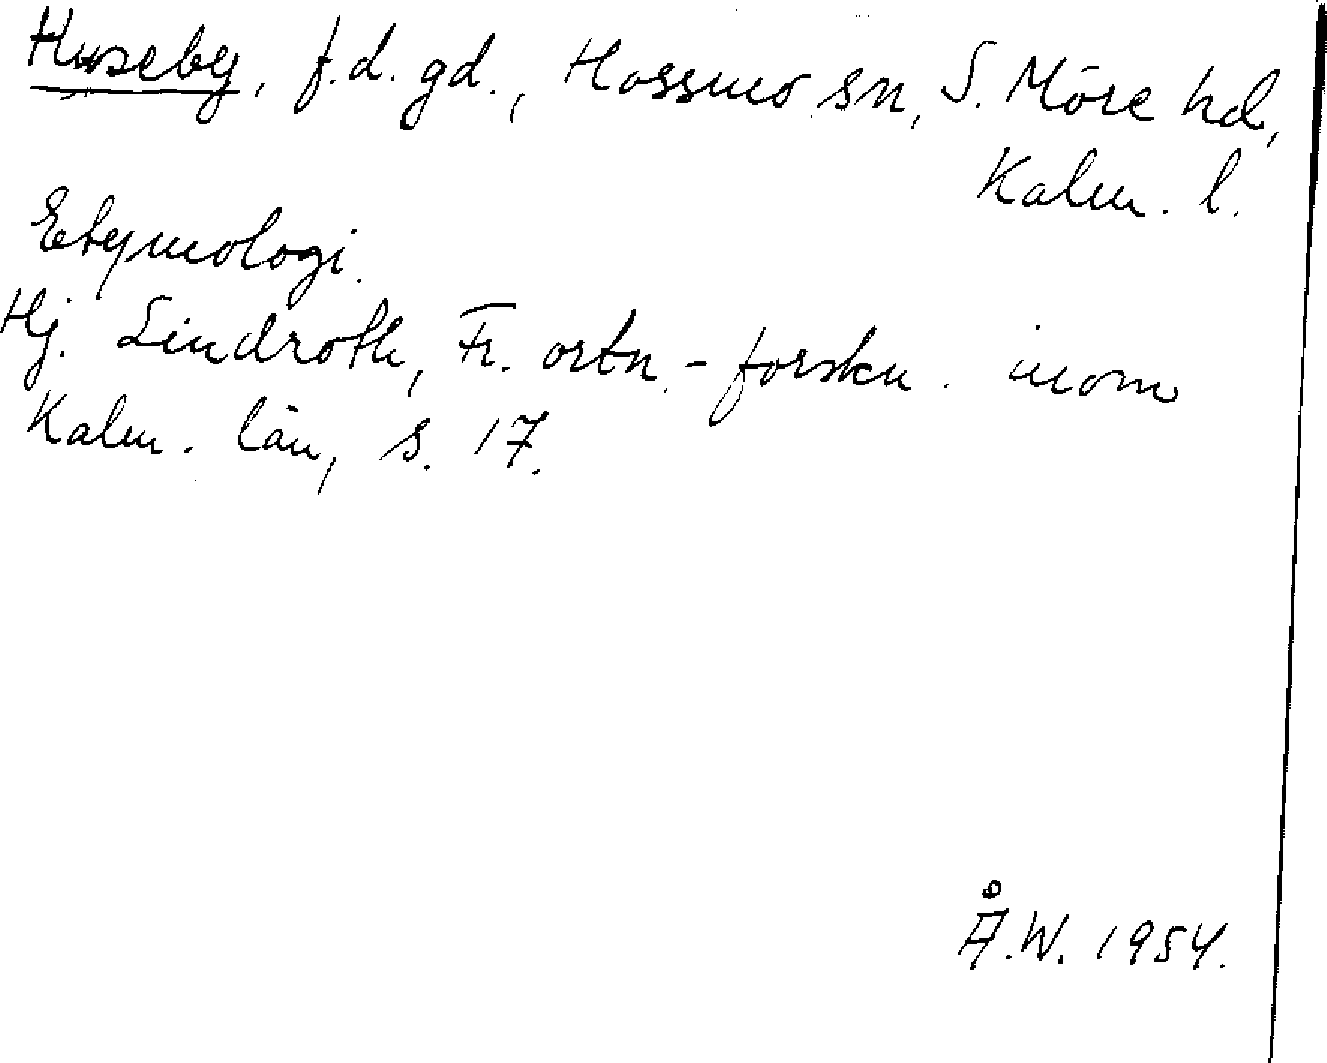 Huseby, f.d. gd., Hossmo sn, S. Möre hd,
Kalm. l.
Etymologi.
Hj. Lindroth, Fr. ortn.-forskn. inom
Kalm. län, s. 17.
Å.W. 1954.